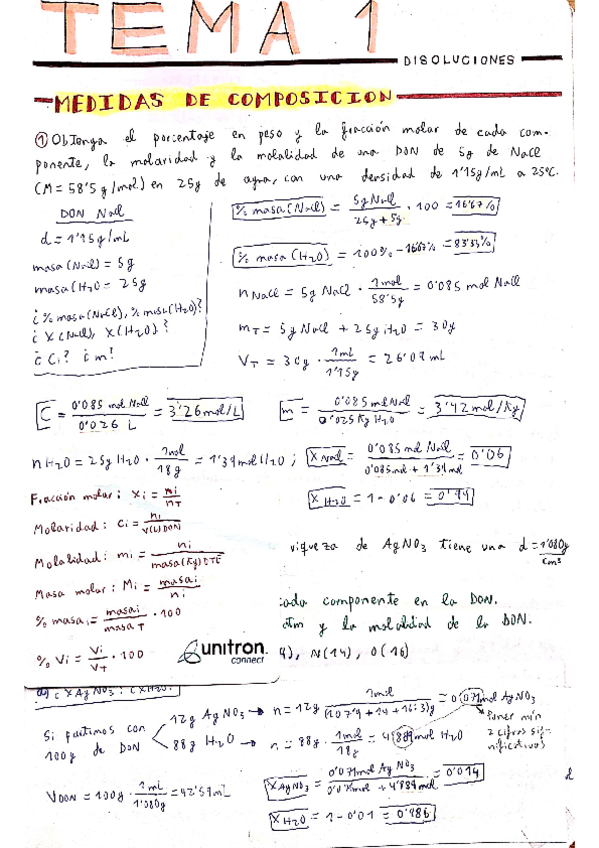 TEMA 1
DISOLUCIONES
MEDIDAS DE COMPOSICION
① Obtenga el porcentaje en peso y la fracción molar de cada com-
ponente, la molaridad y la molalidad de una DON de 5g de NaCl
(M = 58'5 g/mol) en 25g de agua, con una densidad de 1'15g/mL a 25ºC.
DON NaCl
d = 1'15 g/mL
masa (NaCl) = 5g
masa (H2O) = 25g
¿% masa (NaCl), % masa (H2O)?
¿X (NaCl), X (H2O)?
¿Ci? ¿m?
% masa (NaCl) = 5g NaCl / 25g + 5g · 100 = 16'67%
% masa (H2O) = 100% - 16'67% = 83'33%
n NaCl = 5g NaCl · 1mol / 58'5g = 0'085 mol NaCl
mT = 5g NaCl + 25g H2O = 30g
VT = 30g · 1mL / 1'15g = 26'09 mL
C = 0'085 mol NaCl / 0'026 L = 3'26 mol/L
m = 0'085 mol NaCl / 0'025 Kg H2O = 3'42 mol/Kg
n H2O = 25g H2O · 1mol / 18g = 1'39 mol H2O ; X NaCl = 0'085 mol NaCl / 0'085 mol + 1'39 mol = 0'06
X H2O = 1 - 0'06 = 0'94
Fracción molar: Xi = ni / nT
Molaridad: Ci = ni / V(L) DON
Molalidad: mi = ni / masa (Kg) DTE
Masa molar: Mi = masai / ni
% masai = masai / masaT · 100
% Vi = Vi / VT · 100
viqueza de AgNO3 tiene una d = 1'080g / cm3
cada componente en la DON.
y la molalidad de la DON.
N(14), O(16)
unitron.
connect
a) ¿X AgNO3? ¿X H2O?
Si partimos con
100g de DON
12g AgNO3 → n = 12g · 1mol / (107'9 + 14 + 16·3)g = 0'071mol AgNO3
88g H2O → n = 88g · 1mol / 18g = 4'889 mol H2O
Poner mín
2 cifras sig-
nificativas
VDON = 100g · 1mL / 1'080g = 92'59mL
X AgNO3 = 0'071mol AgNO3 / 0'071mol + 4'889 mol = 0'014
X H2O = 1 - 0'01 = 0'986